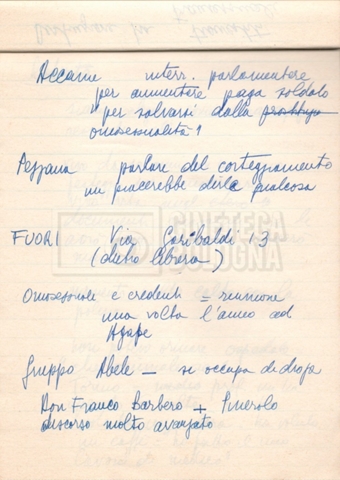 Accame interr. parlamentare
per aumentare paga soldato
per salvarsi dalla prostituz
omosessualità !
Pezzana parlare del corteggiamento
mi piacerebbe dirle qualcosa
FUORI Via Garibaldi 13
(dietro libreria)
CINETECA
BOLOGNA
Omosessuale e credenti = riunione
una volta l'anno ad
Agape
Gruppo Abele — si occupa di droga
Don Franco Barbero + Pinerolo
discorso molto avanzato